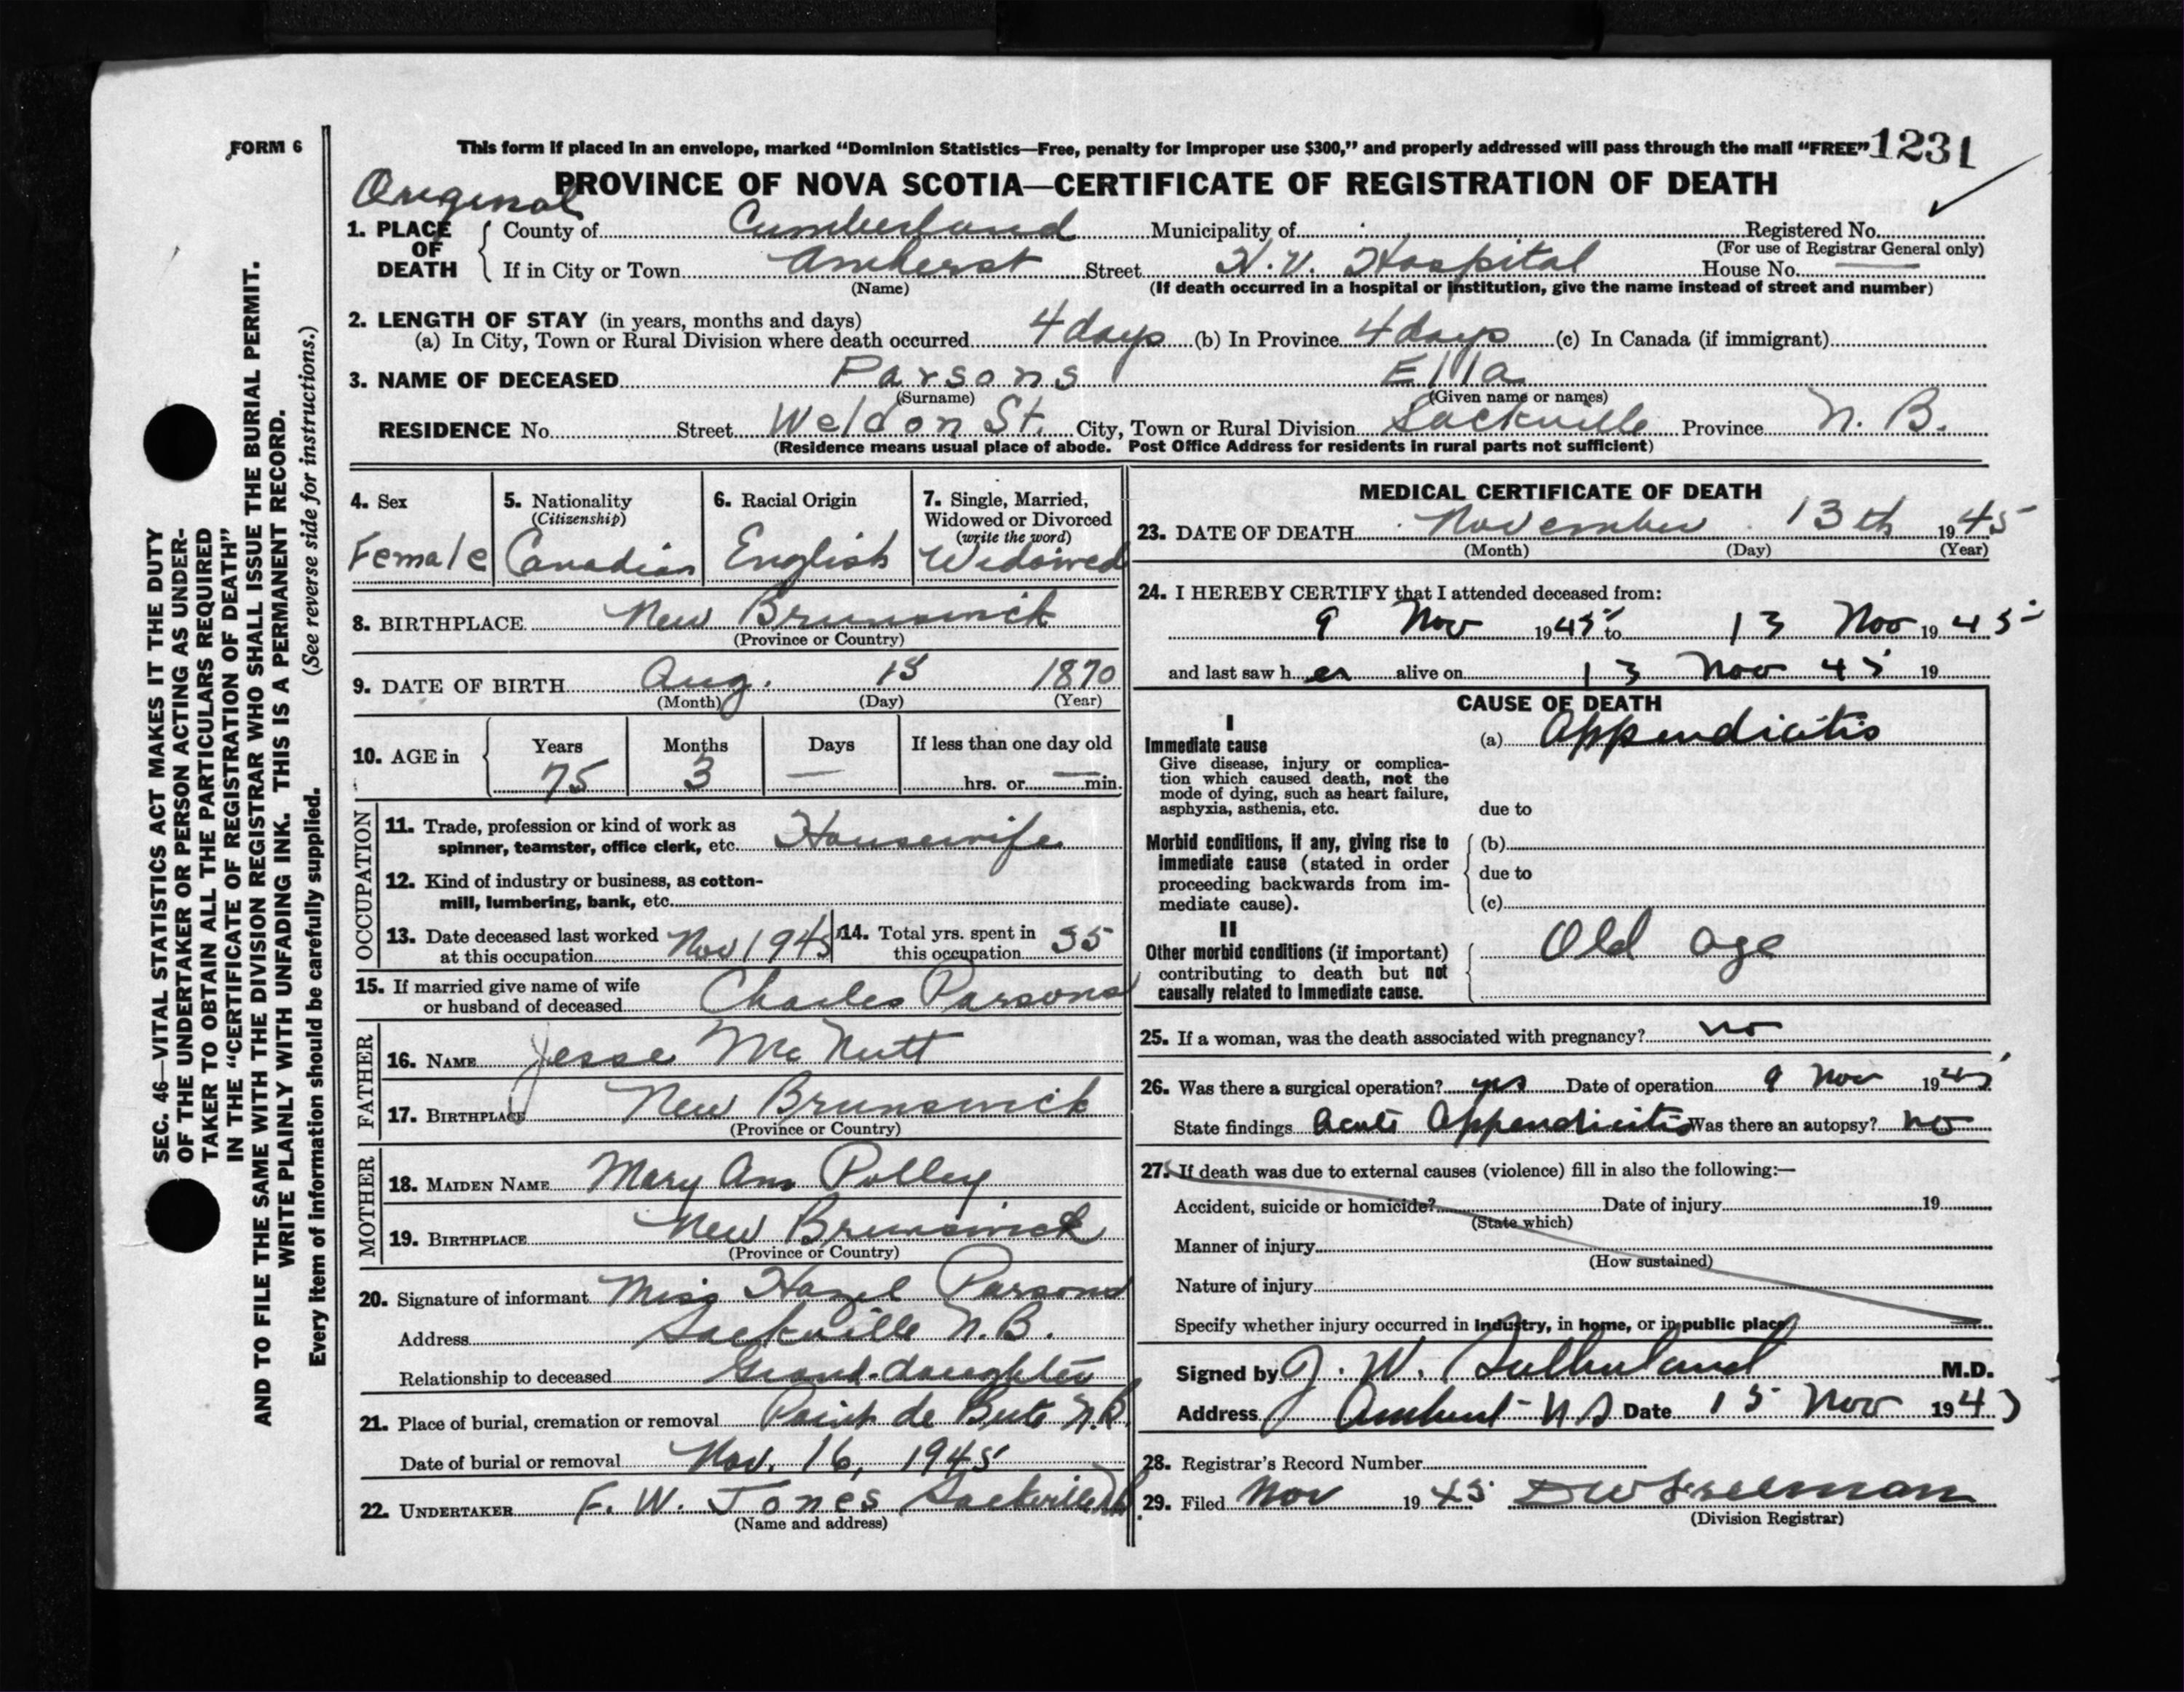 FORM 6
This form if placed in an envelope, marked “Dominion Statistics—Free, penalty for improper use $300,” and properly addressed will pass through the mail “FREE” 1231
Original
PROVINCE OF NOVA SCOTIA—CERTIFICATE OF REGISTRATION OF DEATH
1. PLACE OF DEATH
County of Cumberland Municipality of Registered No.
(For use of Registrar General only)
If in City or Town Amherst Street H.V. Hospital House No. —
(Name) (If death occurred in a hospital or institution, give the name instead of street and number)
2. LENGTH OF STAY (in years, months and days)
(a) In City, Town or Rural Division where death occurred 4 days (b) In Province 4 days (c) In Canada (if immigrant)
3. NAME OF DECEASED Parsons Ella
(Surname) (Given name or names)
RESIDENCE No. Street Weldon St. City, Town or Rural Division Sackville Province N. B.
(Residence means usual place of abode. Post Office Address for residents in rural parts not sufficient)
4. Sex
Female
5. Nationality
(Citizenship)
Canadian
6. Racial Origin
English
7. Single, Married,
Widowed or Divorced
(write the word)
Widowed
8. BIRTHPLACE New Brunswick
(Province or Country)
9. DATE OF BIRTH Aug. 15 1870
(Month) (Day) (Year)
10. AGE in
Years Months Days If less than one day old
75 3 — hrs. or — min.
OCCUPATION
11. Trade, profession or kind of work as
spinner, teamster, office clerk, etc. Housewife
12. Kind of industry or business, as cotton-
mill, lumbering, bank, etc.
13. Date deceased last worked
at this occupation Nov 1945
14. Total yrs. spent in
this occupation 55
15. If married give name of wife
or husband of deceased Charles Parsons
FATHER
16. NAME Jesse McNutt
17. BIRTHPLACE New Brunswick
(Province or Country)
MOTHER
18. MAIDEN NAME Mary Ann Polley
19. BIRTHPLACE New Brunswick
(Province or Country)
20. Signature of informant Miss Hazel Parsons
Address Sackville N.B.
Relationship to deceased Grand-daughter
21. Place of burial, cremation or removal Point de Bute N.B.
Date of burial or removal Nov. 16, 1945
22. UNDERTAKER F. W. Jones Sackville NB
(Name and address)
MEDICAL CERTIFICATE OF DEATH
23. DATE OF DEATH November 13th 1945
(Month) (Day) (Year)
24. I HEREBY CERTIFY that I attended deceased from:
9 Nov 1945 to 13 Nov 1945
and last saw her alive on 13 Nov 45 19
CAUSE OF DEATH
I
Immediate cause
Give disease, injury or complica-
tion which caused death, not the
mode of dying, such as heart failure,
asphyxia, asthenia, etc.
(a) Appendicitis
due to
Morbid conditions, if any, giving rise to
immediate cause (stated in order
proceeding backwards from im-
mediate cause).
(b)
due to
(c)
II
Other morbid conditions (if important)
contributing to death but not
causally related to immediate cause.
Old age
25. If a woman, was the death associated with pregnancy? no
26. Was there a surgical operation? yes Date of operation 9 Nov 1945
State findings Acute Appendicitis Was there an autopsy? no
27. If death was due to external causes (violence) fill in also the following:—
Accident, suicide or homicide? Date of injury 19
(State which)
Manner of injury
(How sustained)
Nature of injury
Specify whether injury occurred in industry, in home, or in public place
Signed by J. W. Sutherland M.D.
Address Amherst N S Date 15 Nov 1945
28. Registrar's Record Number
29. Filed Nov 1945 D W Freeman
(Division Registrar)
SEC. 46—VITAL STATISTICS ACT MAKES IT THE DUTY
OF THE UNDERTAKER OR PERSON ACTING AS UNDER-
TAKER TO OBTAIN ALL THE PARTICULARS REQUIRED
IN THE “CERTIFICATE OF REGISTRATION OF DEATH”
AND TO FILE THE SAME WITH THE DIVISION REGISTRAR WHO SHALL ISSUE THE BURIAL PERMIT.
WRITE PLAINLY WITH UNFADING INK. THIS IS A PERMANENT RECORD.
Every item of information should be carefully supplied. (See reverse side for instructions.)